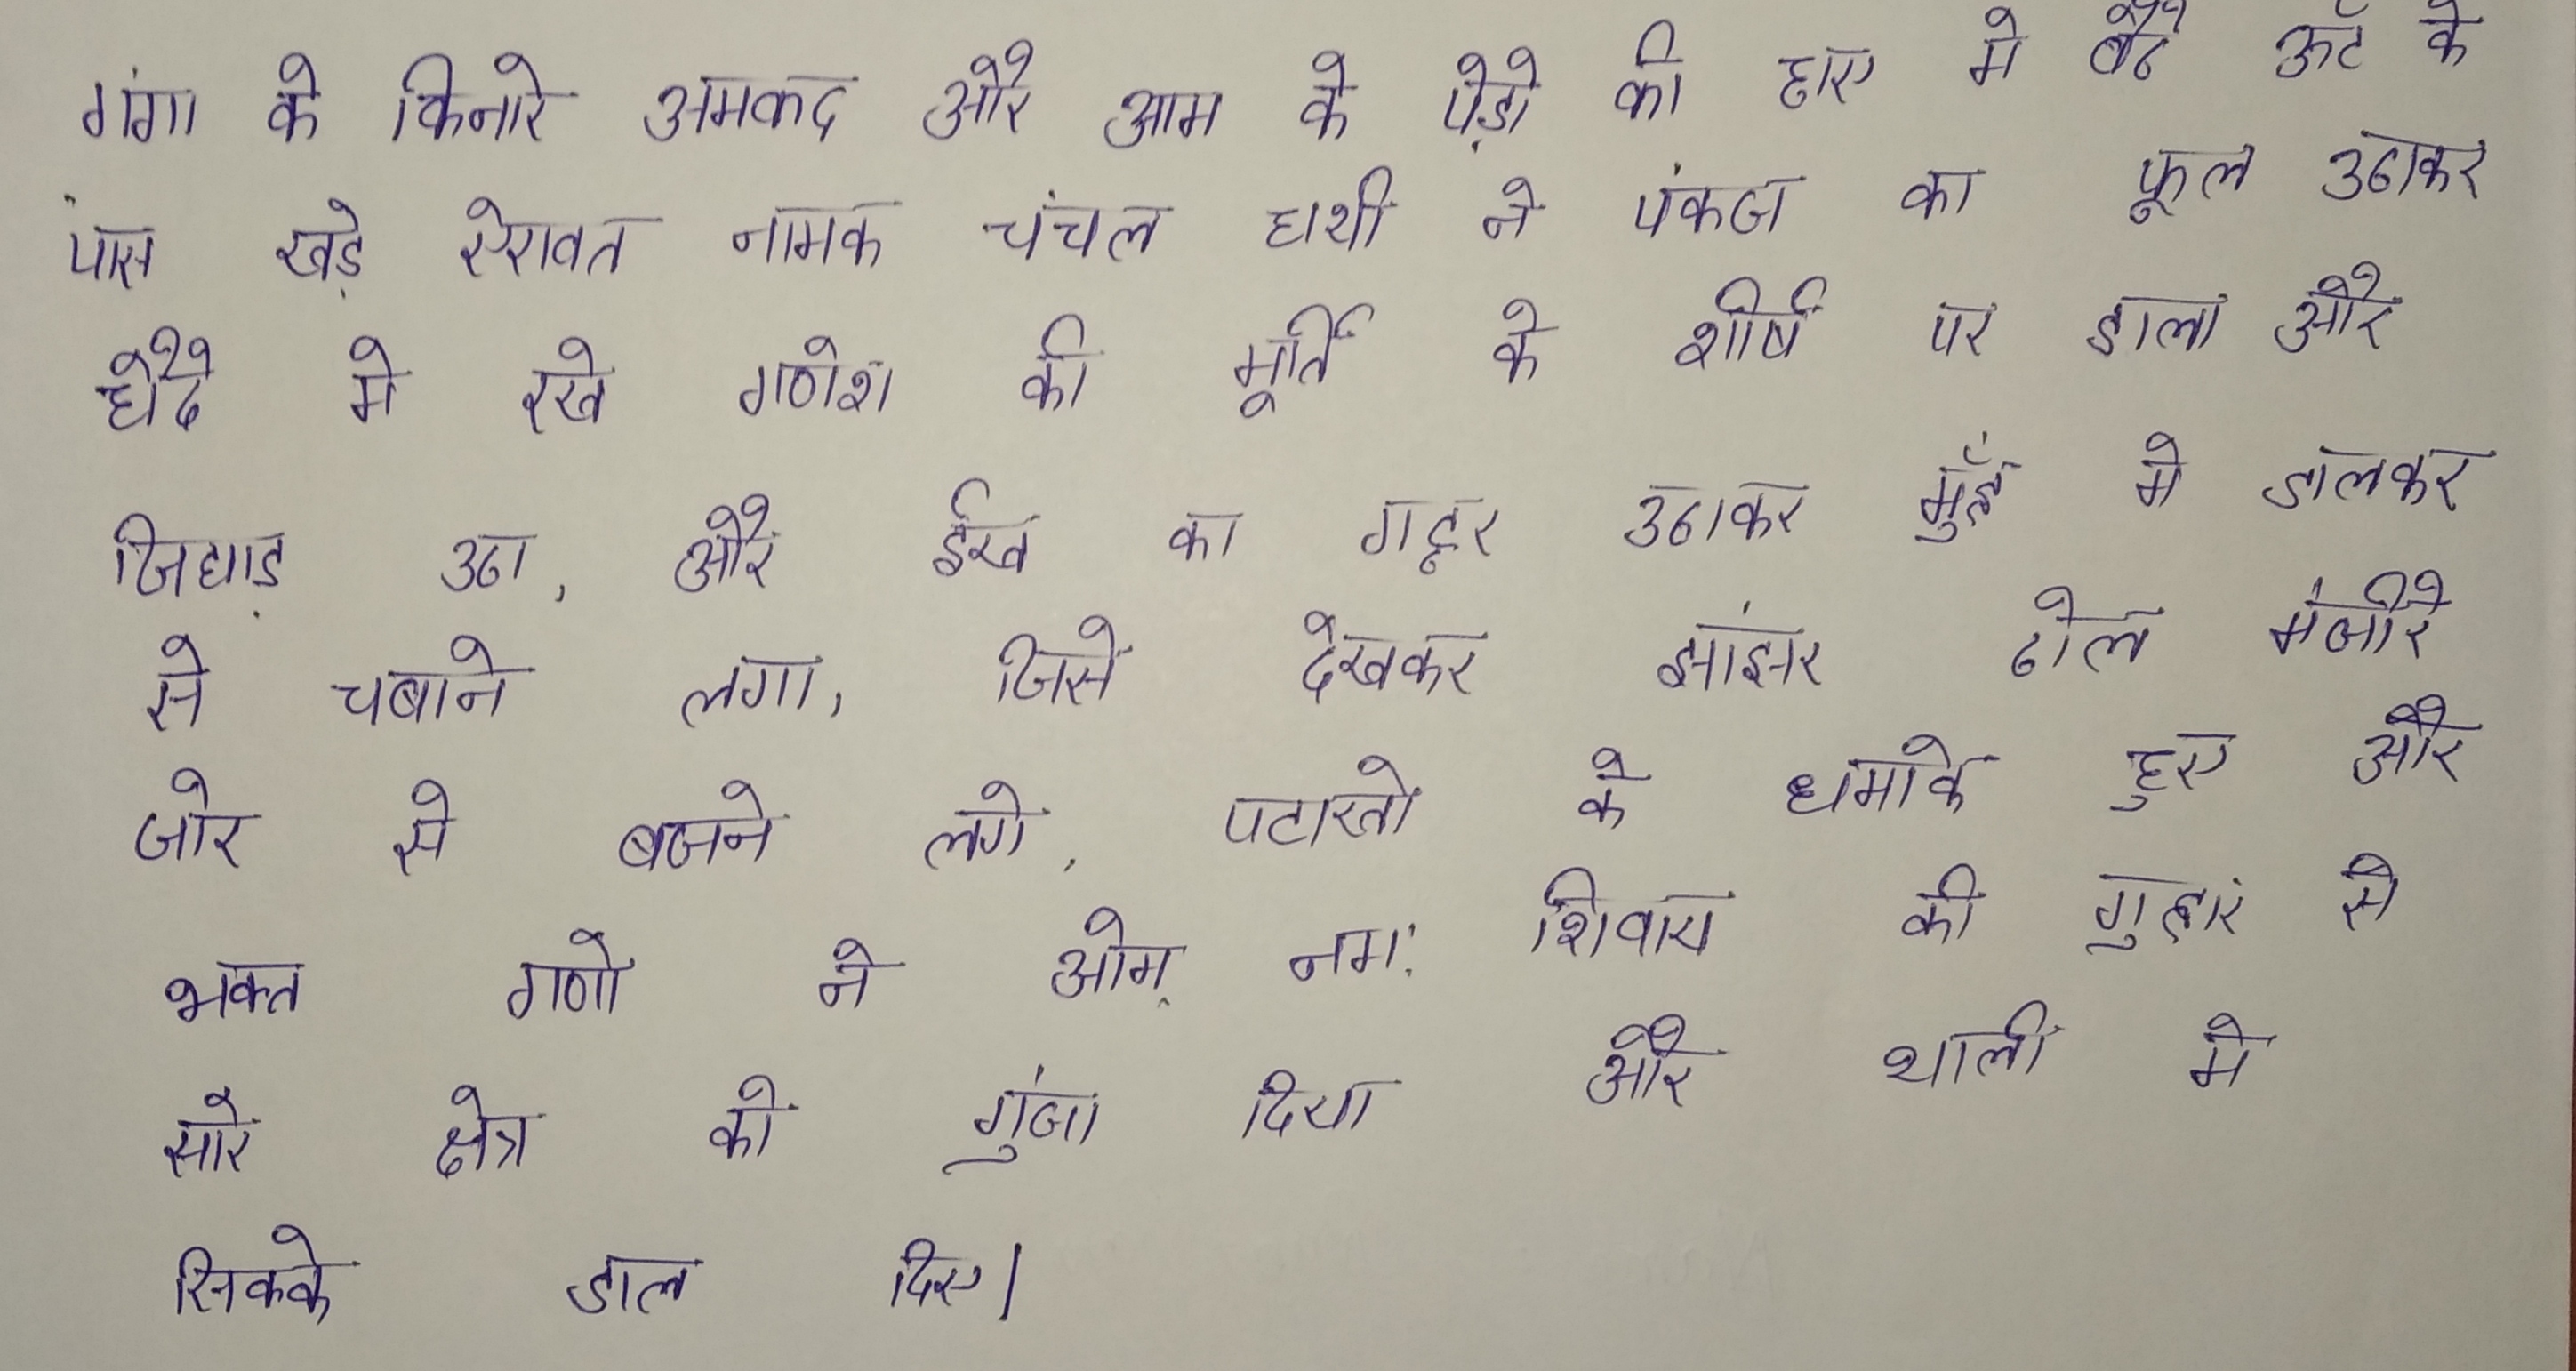 गंगा के किनारे अमकद और आम के पेड़ो की छाए मे बैठे ऊँट के
पास खड़े ऐरावत नामक चंचल हाथी ने पंकज का फूल उठाकर
मे रखे गणेश की मूर्ति के शीर्ष पर डाला और
उठा, और ईख का गट्ठर उठाकर मुँह मे डालकर
से चबाने लगा, जिसे देखकर झांझर ढोल मंजीरे
जोर से बजने लगे, पटाखो के धमाके हुए और
भक्त गणो ने ओम् नमः शिवाय की गुहार से
सारे क्षेत्र को गुंजा दिया और थाली मे
सिक्के डाल दिए।